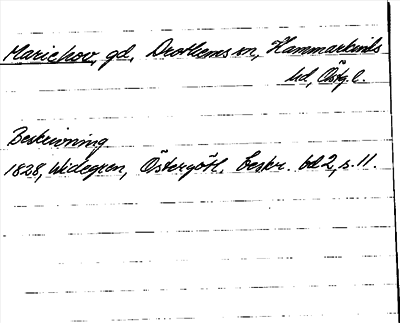 Mariehov, gd, Drothems sn, Hammarkinds
hd, Östg. l.
Beskrivning
1828, Widegren, Östergötl. beskr. bd 2, s. 11.